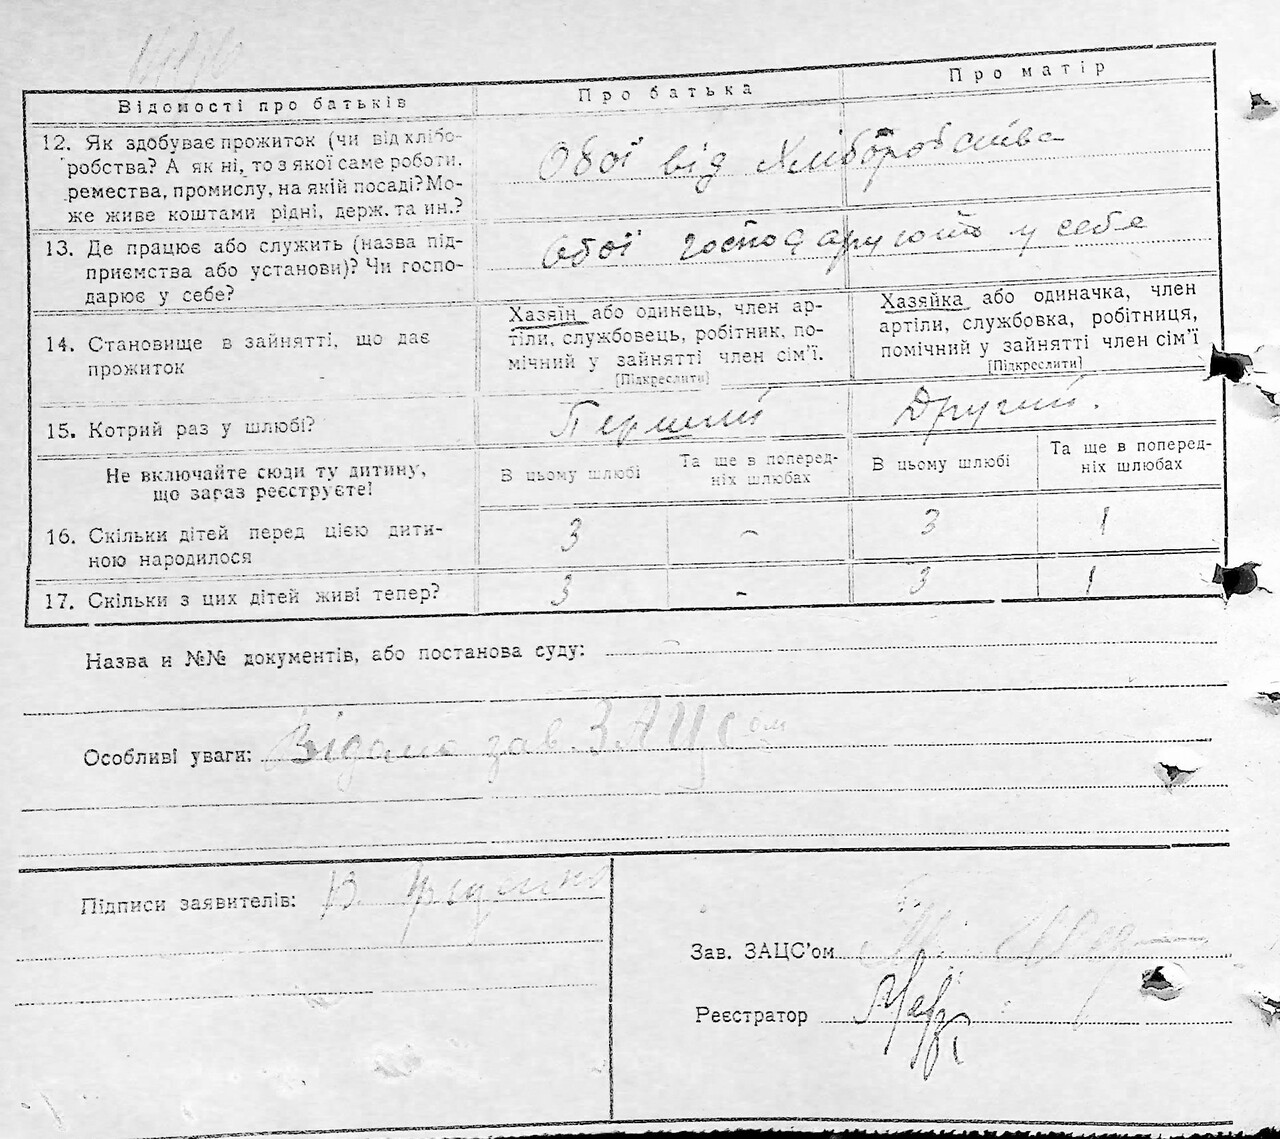 Відомості про батьків
Про батька
Про матір
12. Як здобуває прожиток (чи від хлібо-
робства? А як ні, то з якої саме роботи.
ремества, промислу, на якій посаді? Мо-
же живе коштами рідні, держ. та ин.?
Обої від хліборобства
13. Де працює або служить (назва під-
приємства або установи)? Чи госпо-
дарює у себе?
Обої господарують у себе
14. Становище в зайнятті, що дає
прожиток
Хазяїн або одинець, член ар-
тіли, службовець, робітник, по-
мічний у зайнятті член сім'ї.
[Підкреслити]
Хазяйка або одиначка, член
артіли, службовка, робітниця,
помічний у зайнятті член сім'ї
[Підкреслити]
15. Котрий раз у шлюбі?
Перший
Другий.
Не включайте сюди ту дитину,
що зараз реєструєте!
В цьому шлюбі
Та ще в поперед-
ніх шлюбах
В цьому шлюбі
Та ще в поперед-
ніх шлюбах
16. Скільки дітей перед цією дити-
ною народилося
3 - 3 1
17. Скільки з цих дітей живі тепер?
3 - 3 1
Назва и №№ документів, або постанова суду: -
Особливі уваги: Відомо зав. ЗАЦСом
Підписи заявителів: В.
Зав. ЗАЦС'ом
Реєстратор